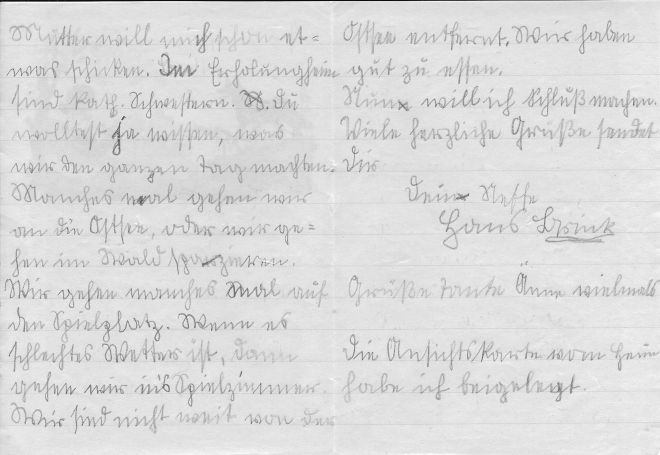 Mutter will mich schon et=
was schicken. Im Erholungheim
sind kath. Schwestern. Du
wolltest ja wissen, was
wir den ganzen tag machten.
Manches mal gehen wir
an die Ostsee, oder wir ge=
hen im Wald spazieren.
Wir gehen manches Mal auf
den Spielplatz. Wenn es
schlechtes Wetter ist, dann
gehen wir ins Spielzimmer.
Wir sind nicht weit von der
Ostsee entfernt. Wir haben
gut zu essen.
Nun will ich Schluß machen.
Viele herzliche Grüße sendet
Dir
Dein Neffe
Hans
Grüße tante Änne vielmals
Die Ansichtskarte vom Heim
habe ich beigelegt.